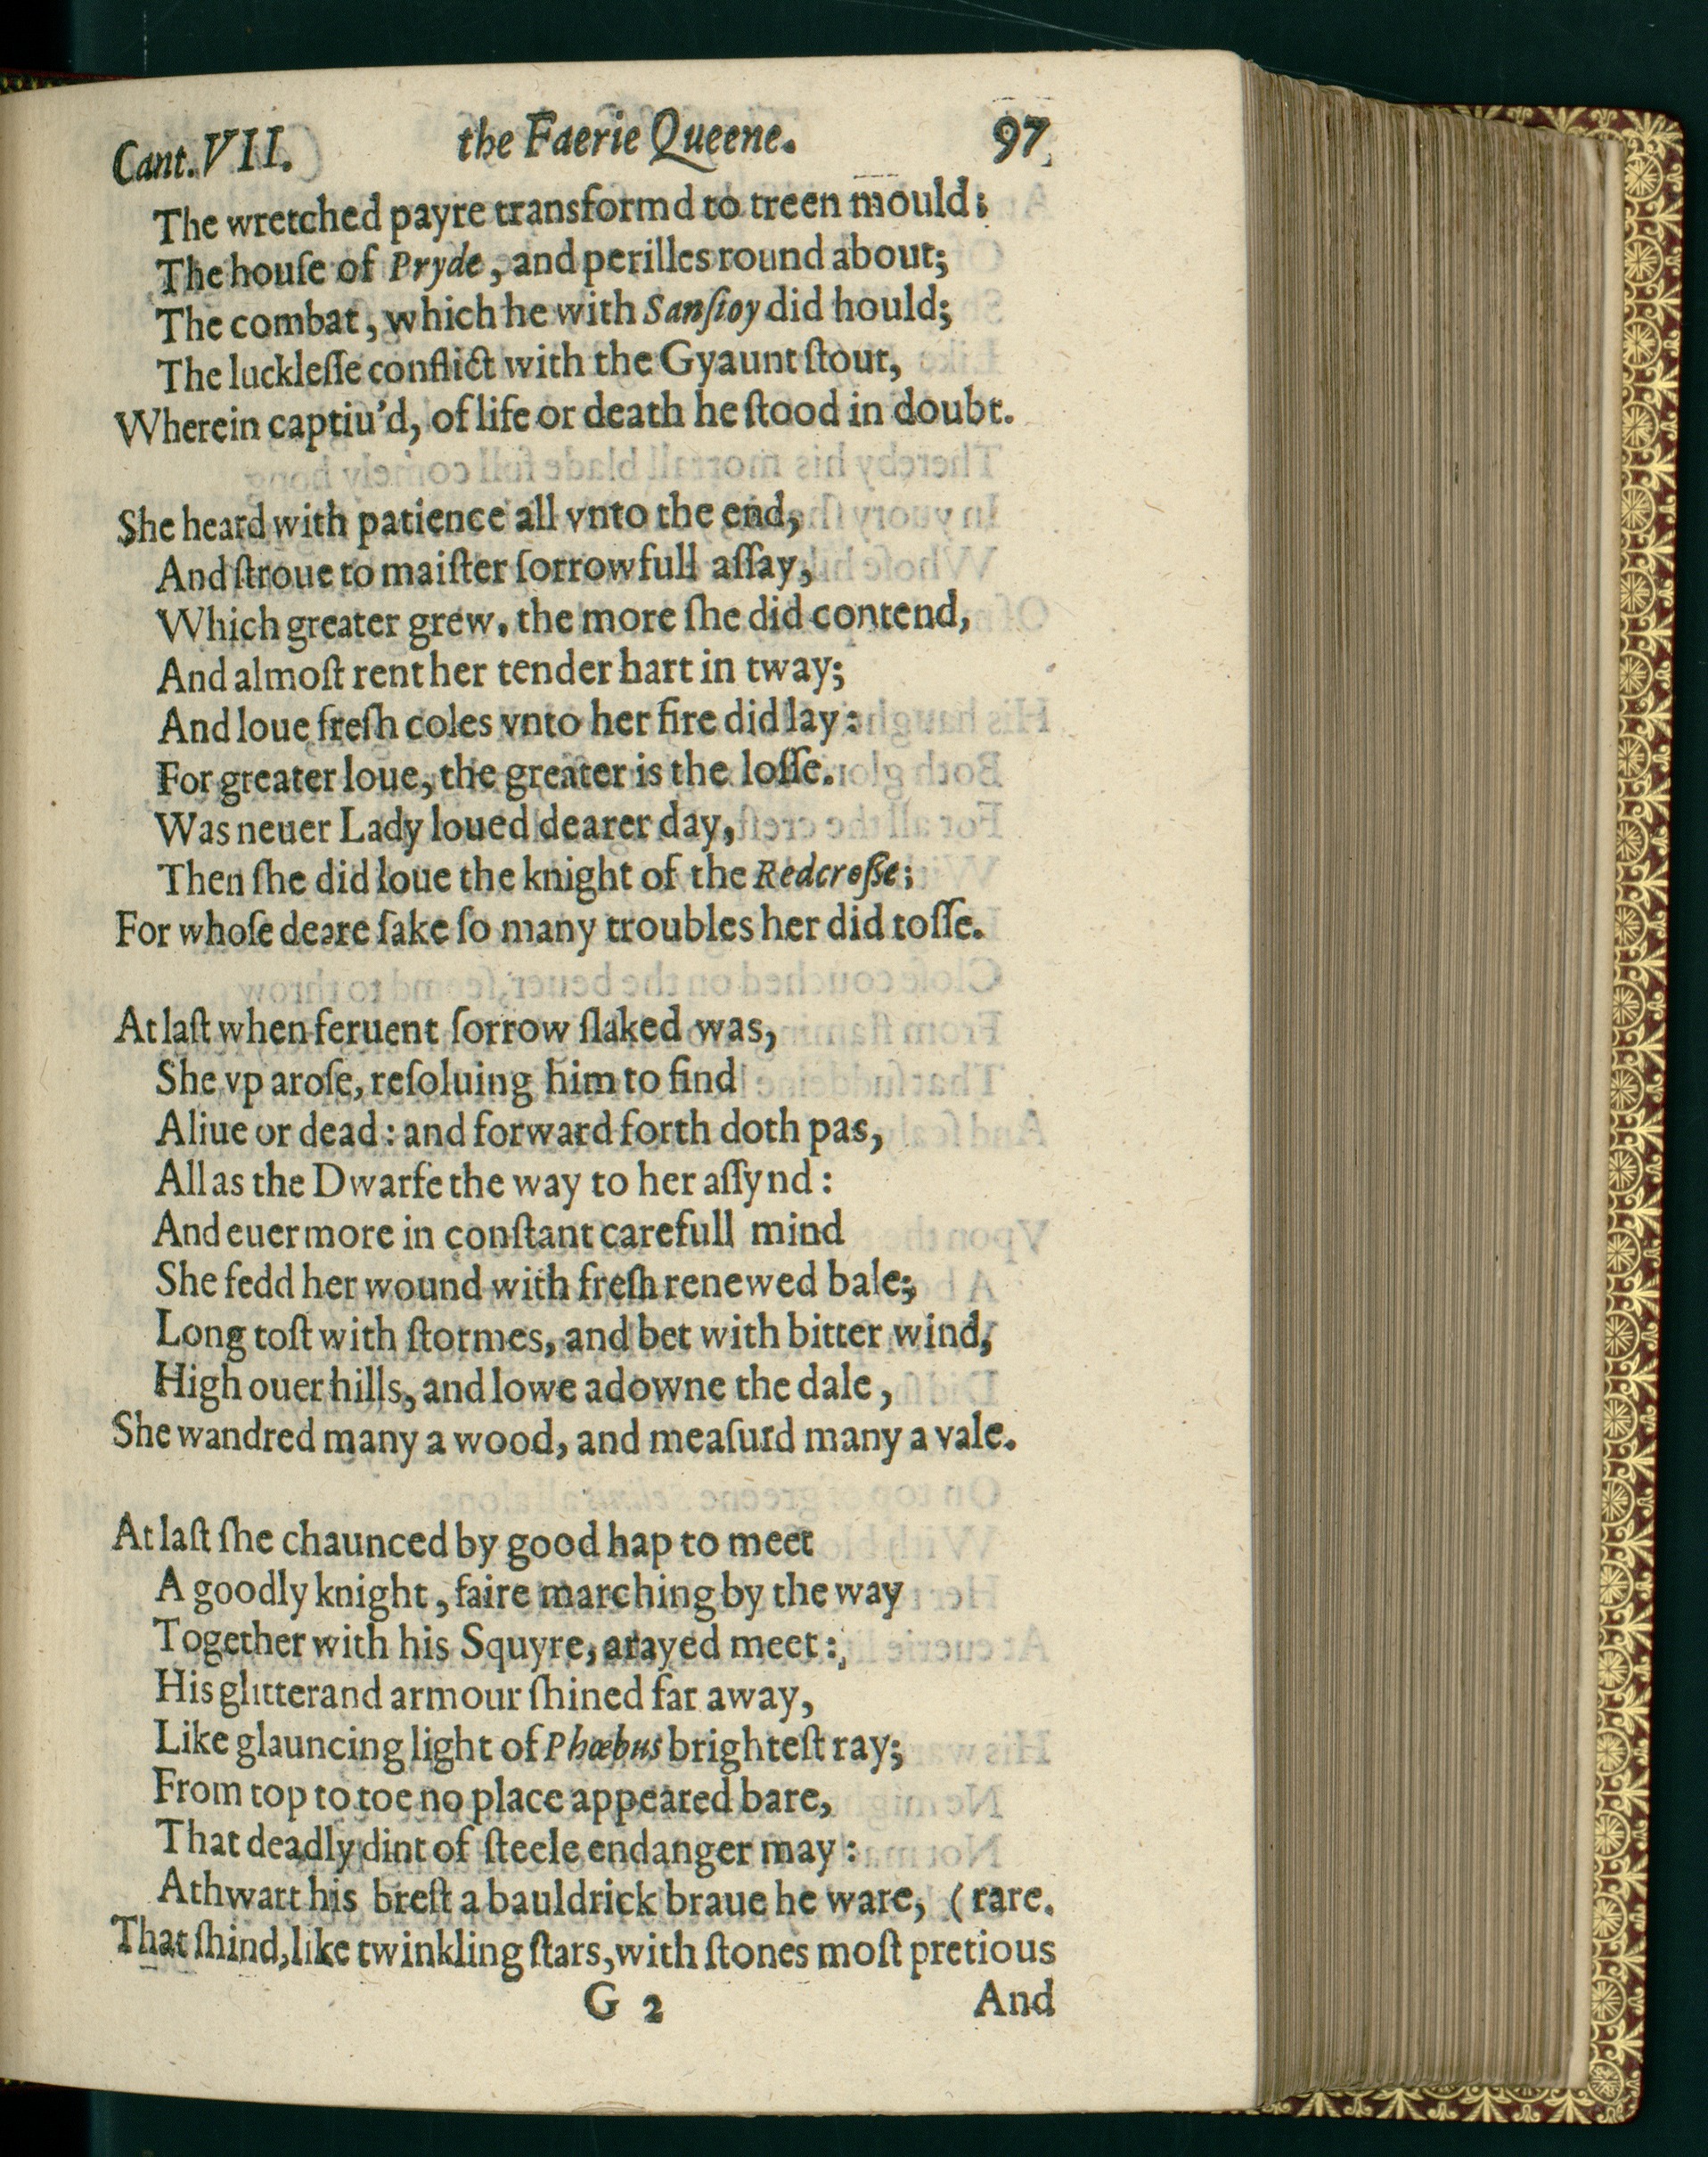 Cant. VII. the Faerie Queene. 97
The wretched payre transformd to treen mould;
The houſe of Pryde, and perilles round about;
The combat, which he with Sanſioy did hould;
The luckleſſe conflict with the Gyaunt ſtout,
Wherein captiu'd, of life or death he ſtood in doubt.
She heard with patience all vnto the end,
And ſtroue to maiſter ſorrowfull aſſay,
Which greater grew, the more ſhe did contend,
And almoſt rent her tender hart in tway;
And loue freſh coles vnto her fire did lay:
For greater loue, the greater is the loſſe.
Was neuer Lady loued dearer day,
Then ſhe did loue the knight of the Redcroſſe;
For whoſe deare ſake ſo many troubles her did toſſe.
At laſt when feruent ſorrow ſlaked was,
She vp aroſe, reſoluing him to find
Aliue or dead: and forward forth doth pas,
All as the Dwarfe the way to her aſſynd:
And euer more in conſtant carefull mind
She fedd her wound with freſh renewed bale;
Long toſt with ſtormes, and bet with bitter wind,
High ouer hills, and lowe adowne the dale,
She wandred many a wood, and meaſurd many a vale.
At laſt ſhe chaunced by good hap to meet
A goodly knight, faire marching by the way
Together with his Squyre, arayed meet:
His glitterand armour ſhined far away,
Like glauncing light of Phœbus brighteſt ray;
From top to toe no place appeared bare,
That deadly dint of ſteele endanger may:
Athwart his breſt a bauldrick braue he ware, (rare.
That ſhind, like twinkling ſtars, with ſtones moſt pretious
G 2 And